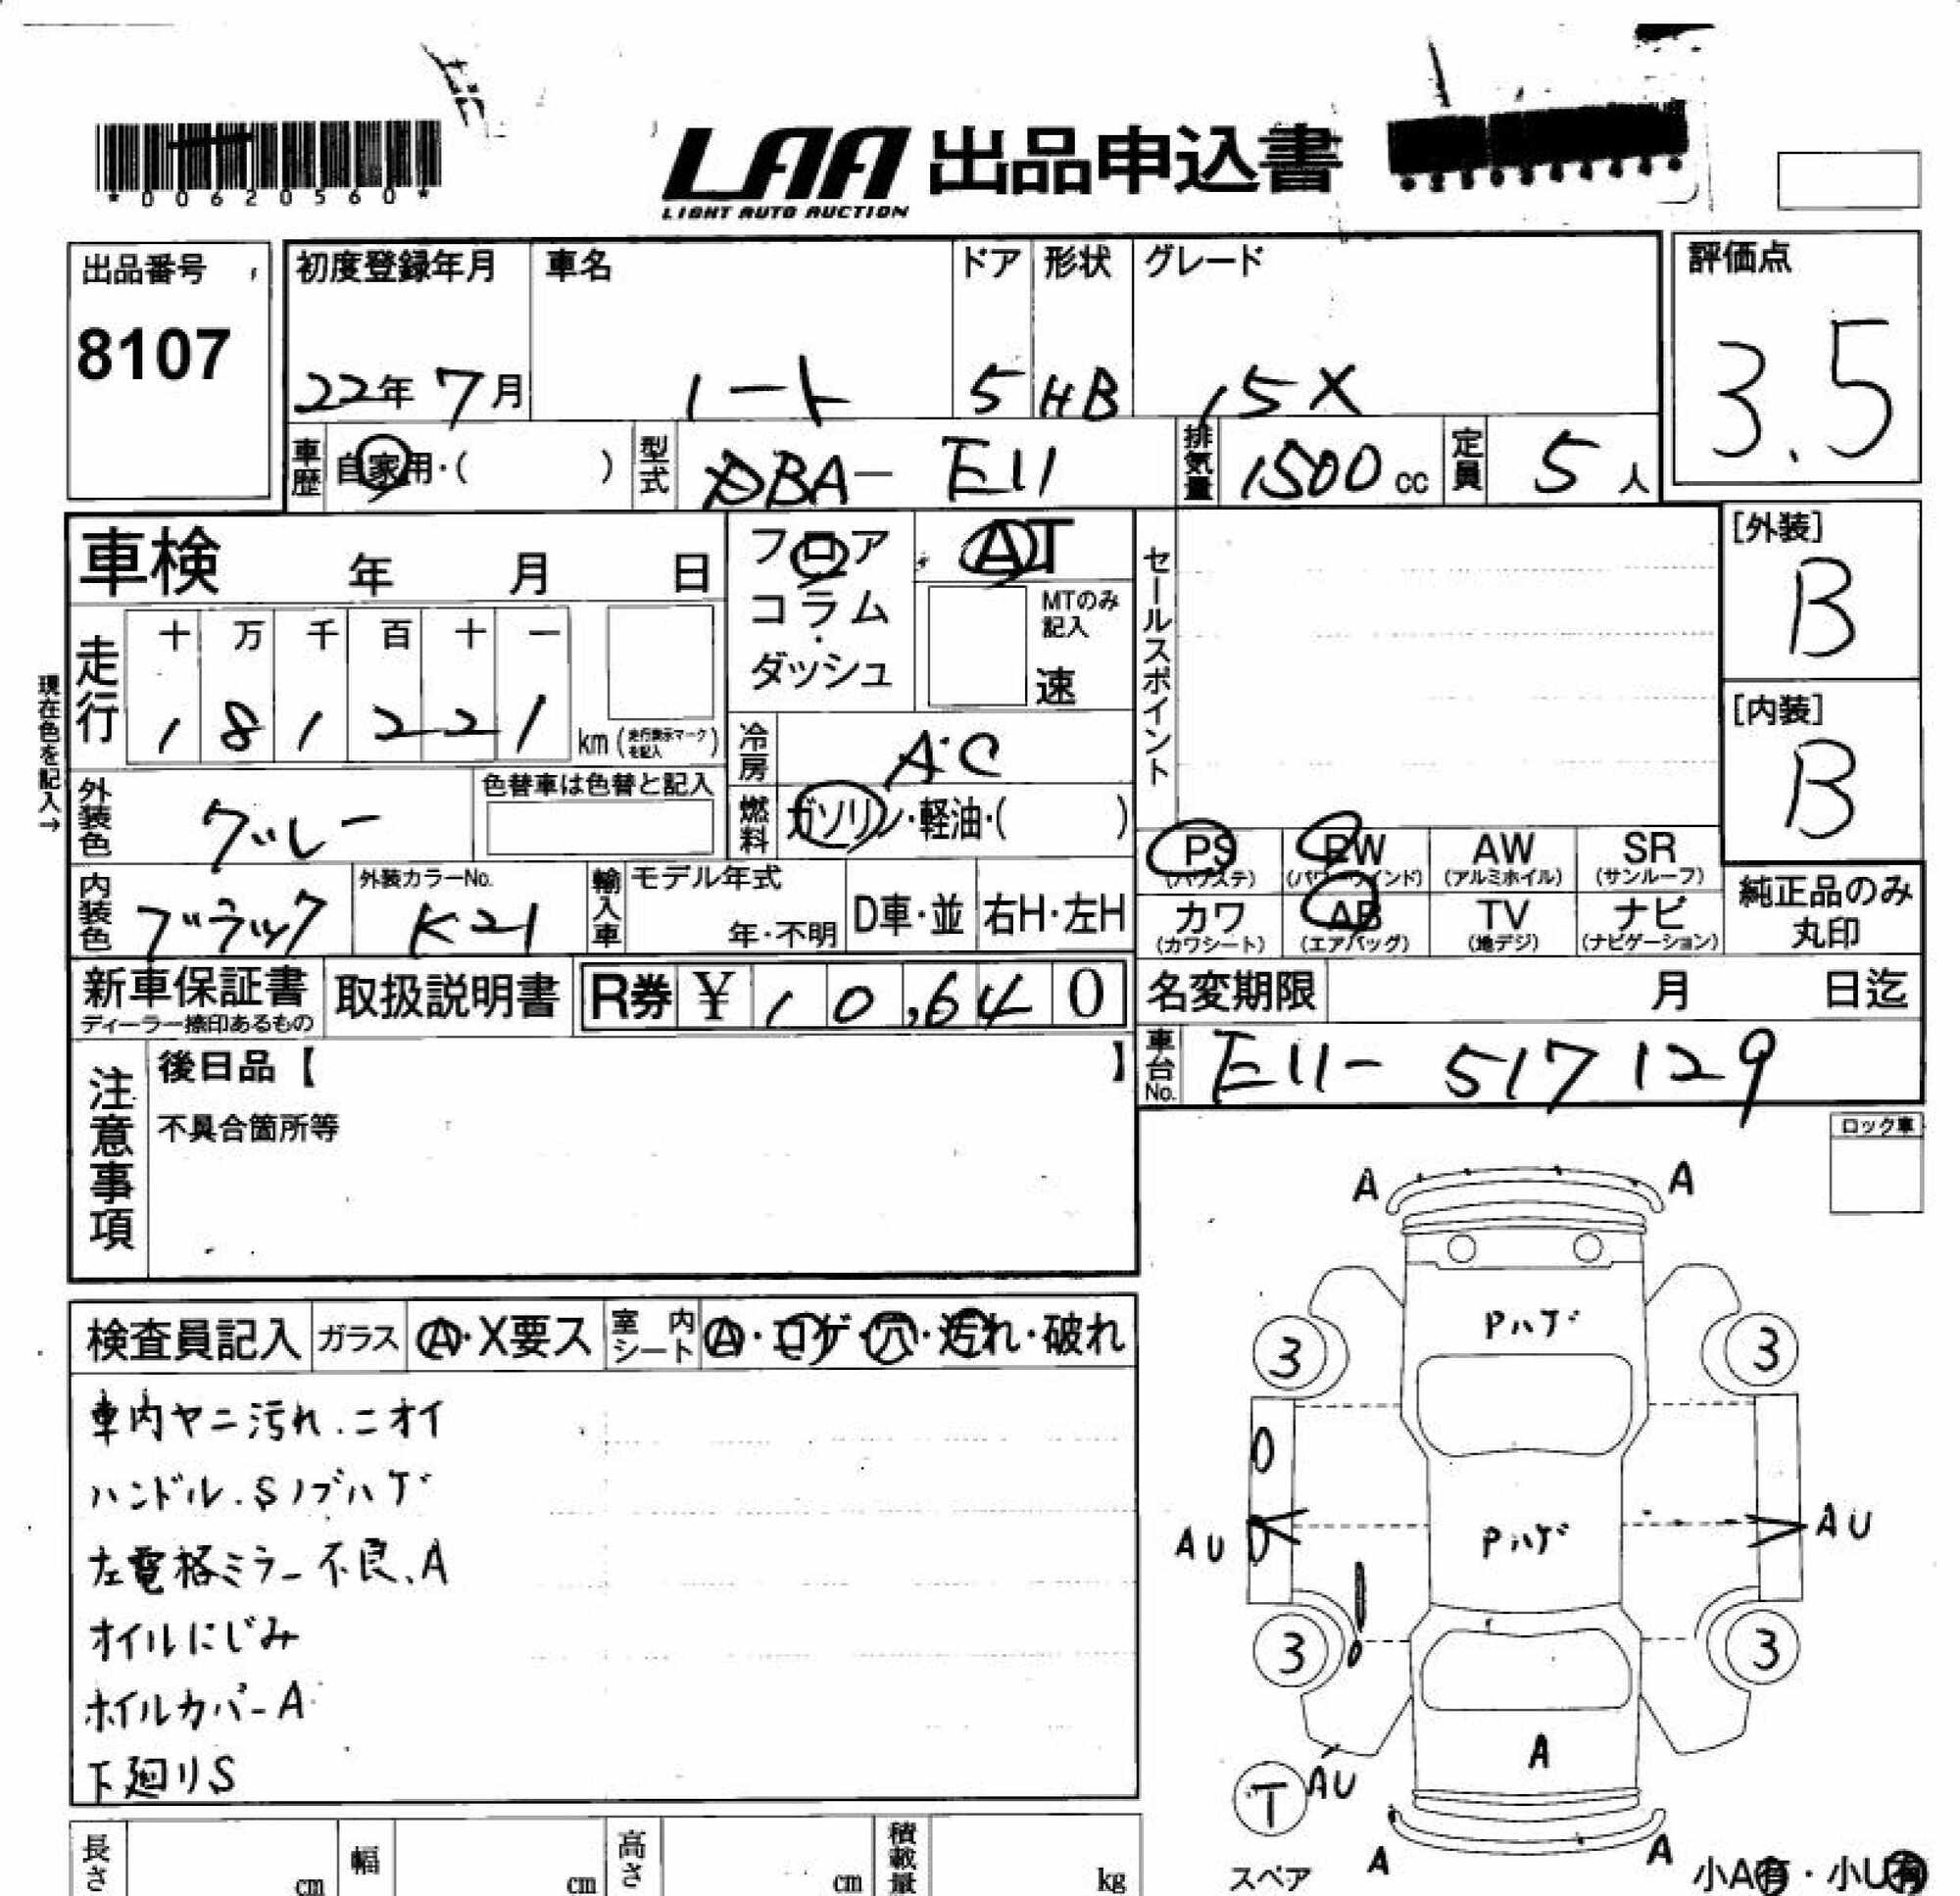 *00620560*
LAA 出品申込書
LIGHT AUTO AUCTION
出品番号
8107
初度登録年月
22年 7月
車名
ノート
ドア
5
形状
HB
グレード
15X
評価点
3.5
車歴
自家用・( )
型式
DBA- E11
排気量
1500 cc
定員
5 人
車検 年 月 日
フロア
コラム
・
ダッシュ
AT
MTのみ
記入
速
セールスポイント
[外装]
B
[内装]
B
走行
十 万 千 百 十 一
1 8 1 2 2 1
km (走行表示マークを記入)
現在色を記入→
冷房
A・C
燃料
ガソリン・軽油・( )
外装色
グレー
色替車は色替と記入
内装色
ブラック
外装カラーNo.
K21
輸入車
モデル年式
年・不明
D車・並
右H・左H
PS
(パワステ)
PW
(パワーウインド)
AW
(アルミホイル)
SR
(サンルーフ)
カワ
(カワシート)
AB
(エアバッグ)
TV
(地デジ)
ナビ
(ナビゲーション)
純正品のみ
丸印
新車保証書
ディーラー捺印あるもの
取扱説明書
R券 ¥ 10,640
名変期限 月 日迄
車台No.
E11- 517129
注意事項
後日品【 】
不具合箇所等
ロック車
検査員記入
ガラス
A・X要ス
室内シート
A・コゲ・穴・汚れ・破れ
車内ヤニ汚れ.ニオイ
ハンドル.Sノブハゲ
左電格ミラー不良、A
オイルにじみ
ホイルカバーA
下廻りS
A A
Pハゲ
3 3
Pハゲ
AU AU
3 3
A
T AU
スペア
A A
小A有・小U有
長さ cm
幅 cm
高さ cm
積載量 kg